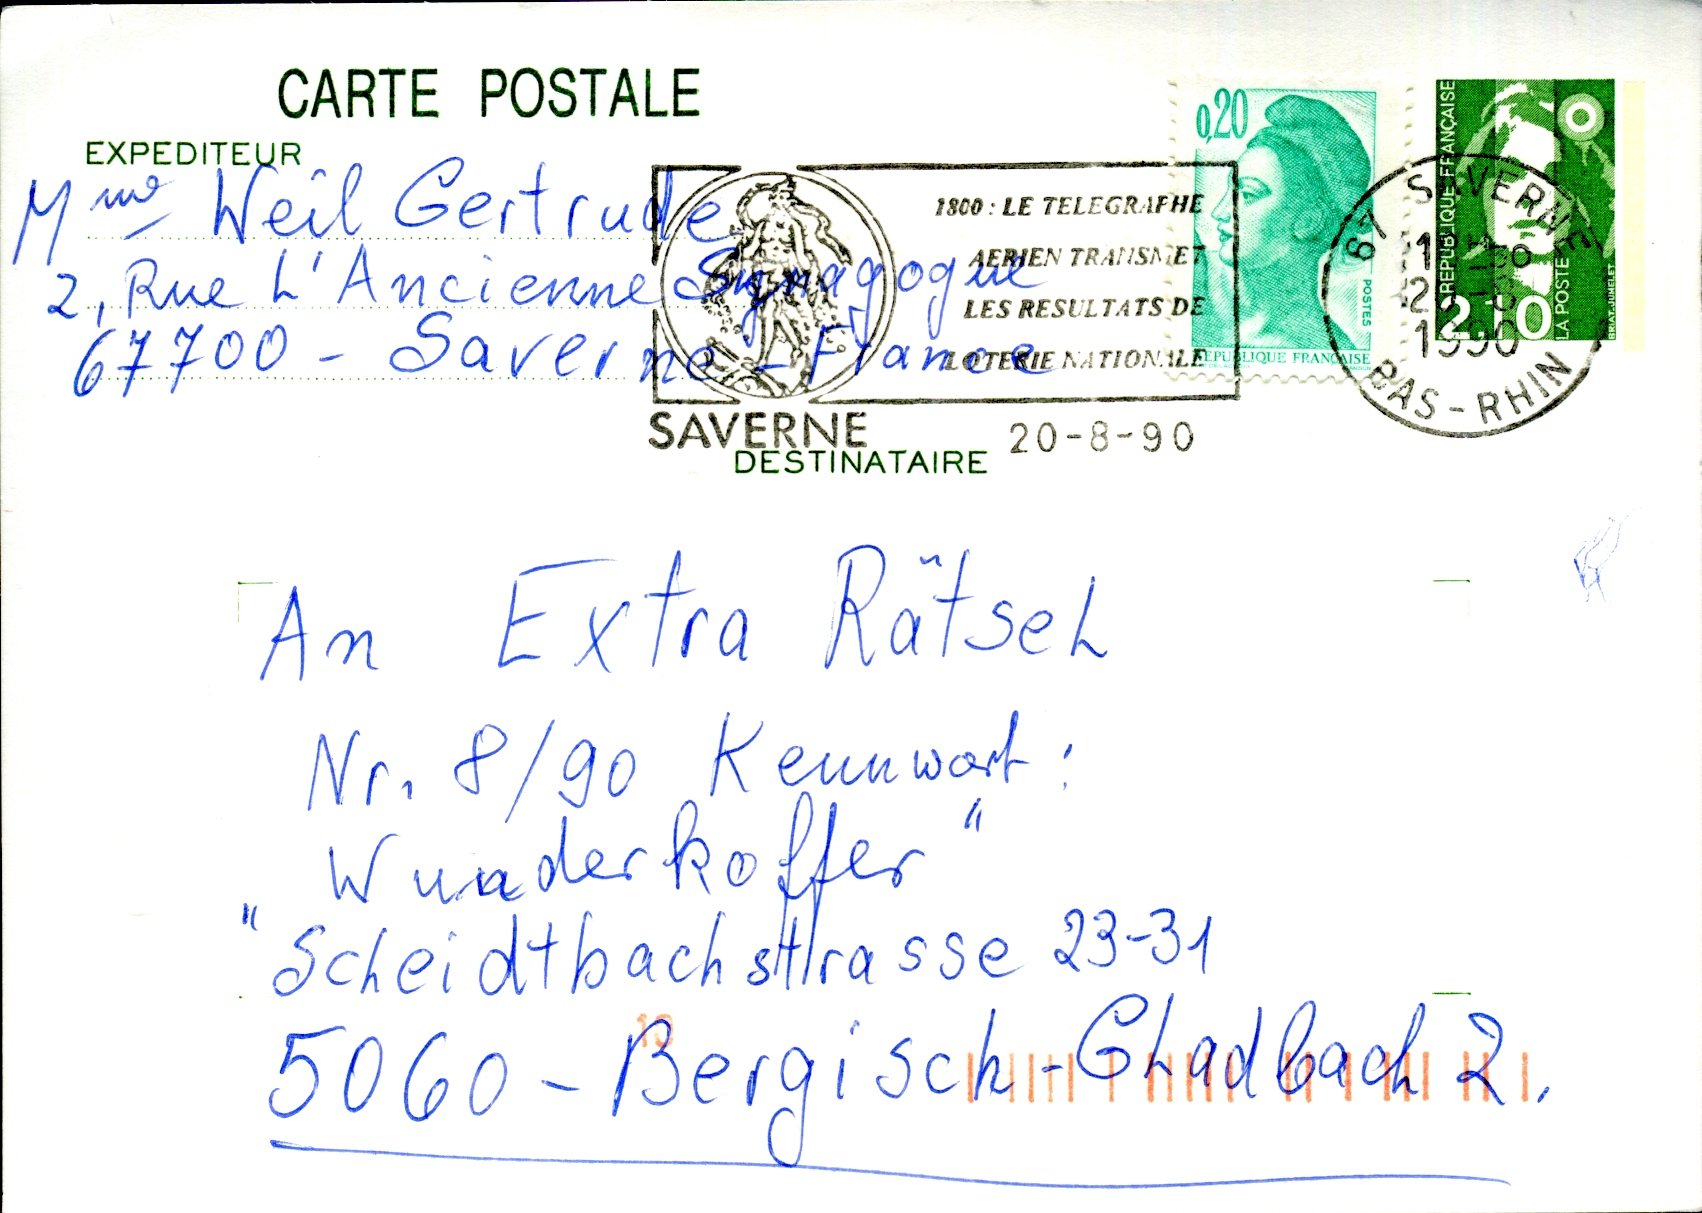 CARTE POSTALE
EXPEDITEUR
Mme Weil Gertrude
2, Rue L'Ancienne Synagogue
67700 - Saverne - France
1800 : LE TELEGRAPHE
AERIEN TRANSMET
LES RESULTATS DE
LOTERIE NATIONALE
SAVERNE
20-8-90
0,20
POSTES
REPUBLIQUE FRANÇAISE
REPUBLIQUE FRANÇAISE
2,10
LA POSTE
BRIAT-JUMELET
67 SAVERNE
1990
BAS-RHIN
DESTINATAIRE
An Extra Rätsel
Nr. 8/90 Kennwort:
Wunderkoffer"
"Scheidtbachsttrasse 23-31
5060 - Bergisch-Gladbach 2.